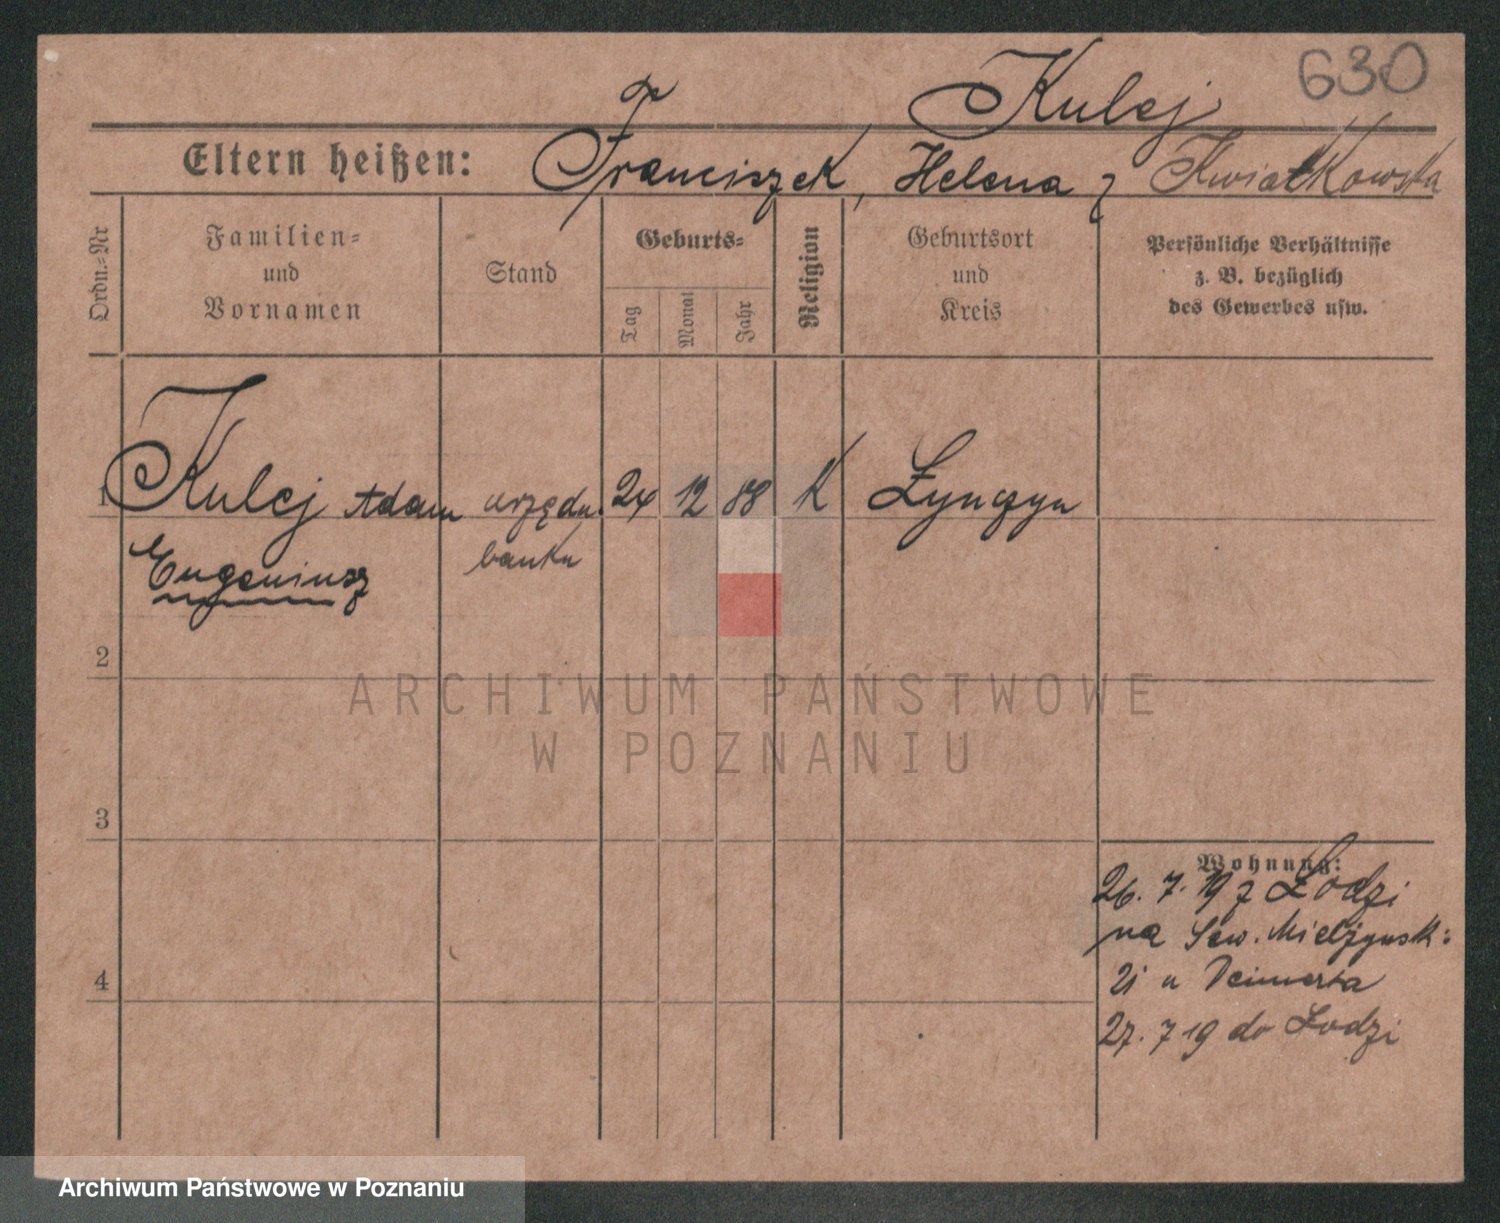 630
Kulej
Eltern heißen: Franciszek, Helena z Kwiatkowska
Ordn.-Nr
Familien-
und
Vornamen
Stand
Geburts-
Tag
Monat
Jahr
Religion
Geburtsort
und
Kreis
Persönliche Verhältnisse
z. B. bezüglich
des Gewerbes usw.
1 Kulej Adam urzędn. 24 12 88 K
Eugeniusz banku
2
3
4
Wohnung:
26. 7. 19 z Łodzi
na Sew. Mielżyńsk:
21 u
27. 7 19 do Łodzi
ARCHIWUM PAŃSTWOWE
W POZNANIU
Archiwum Państwowe w Poznaniu